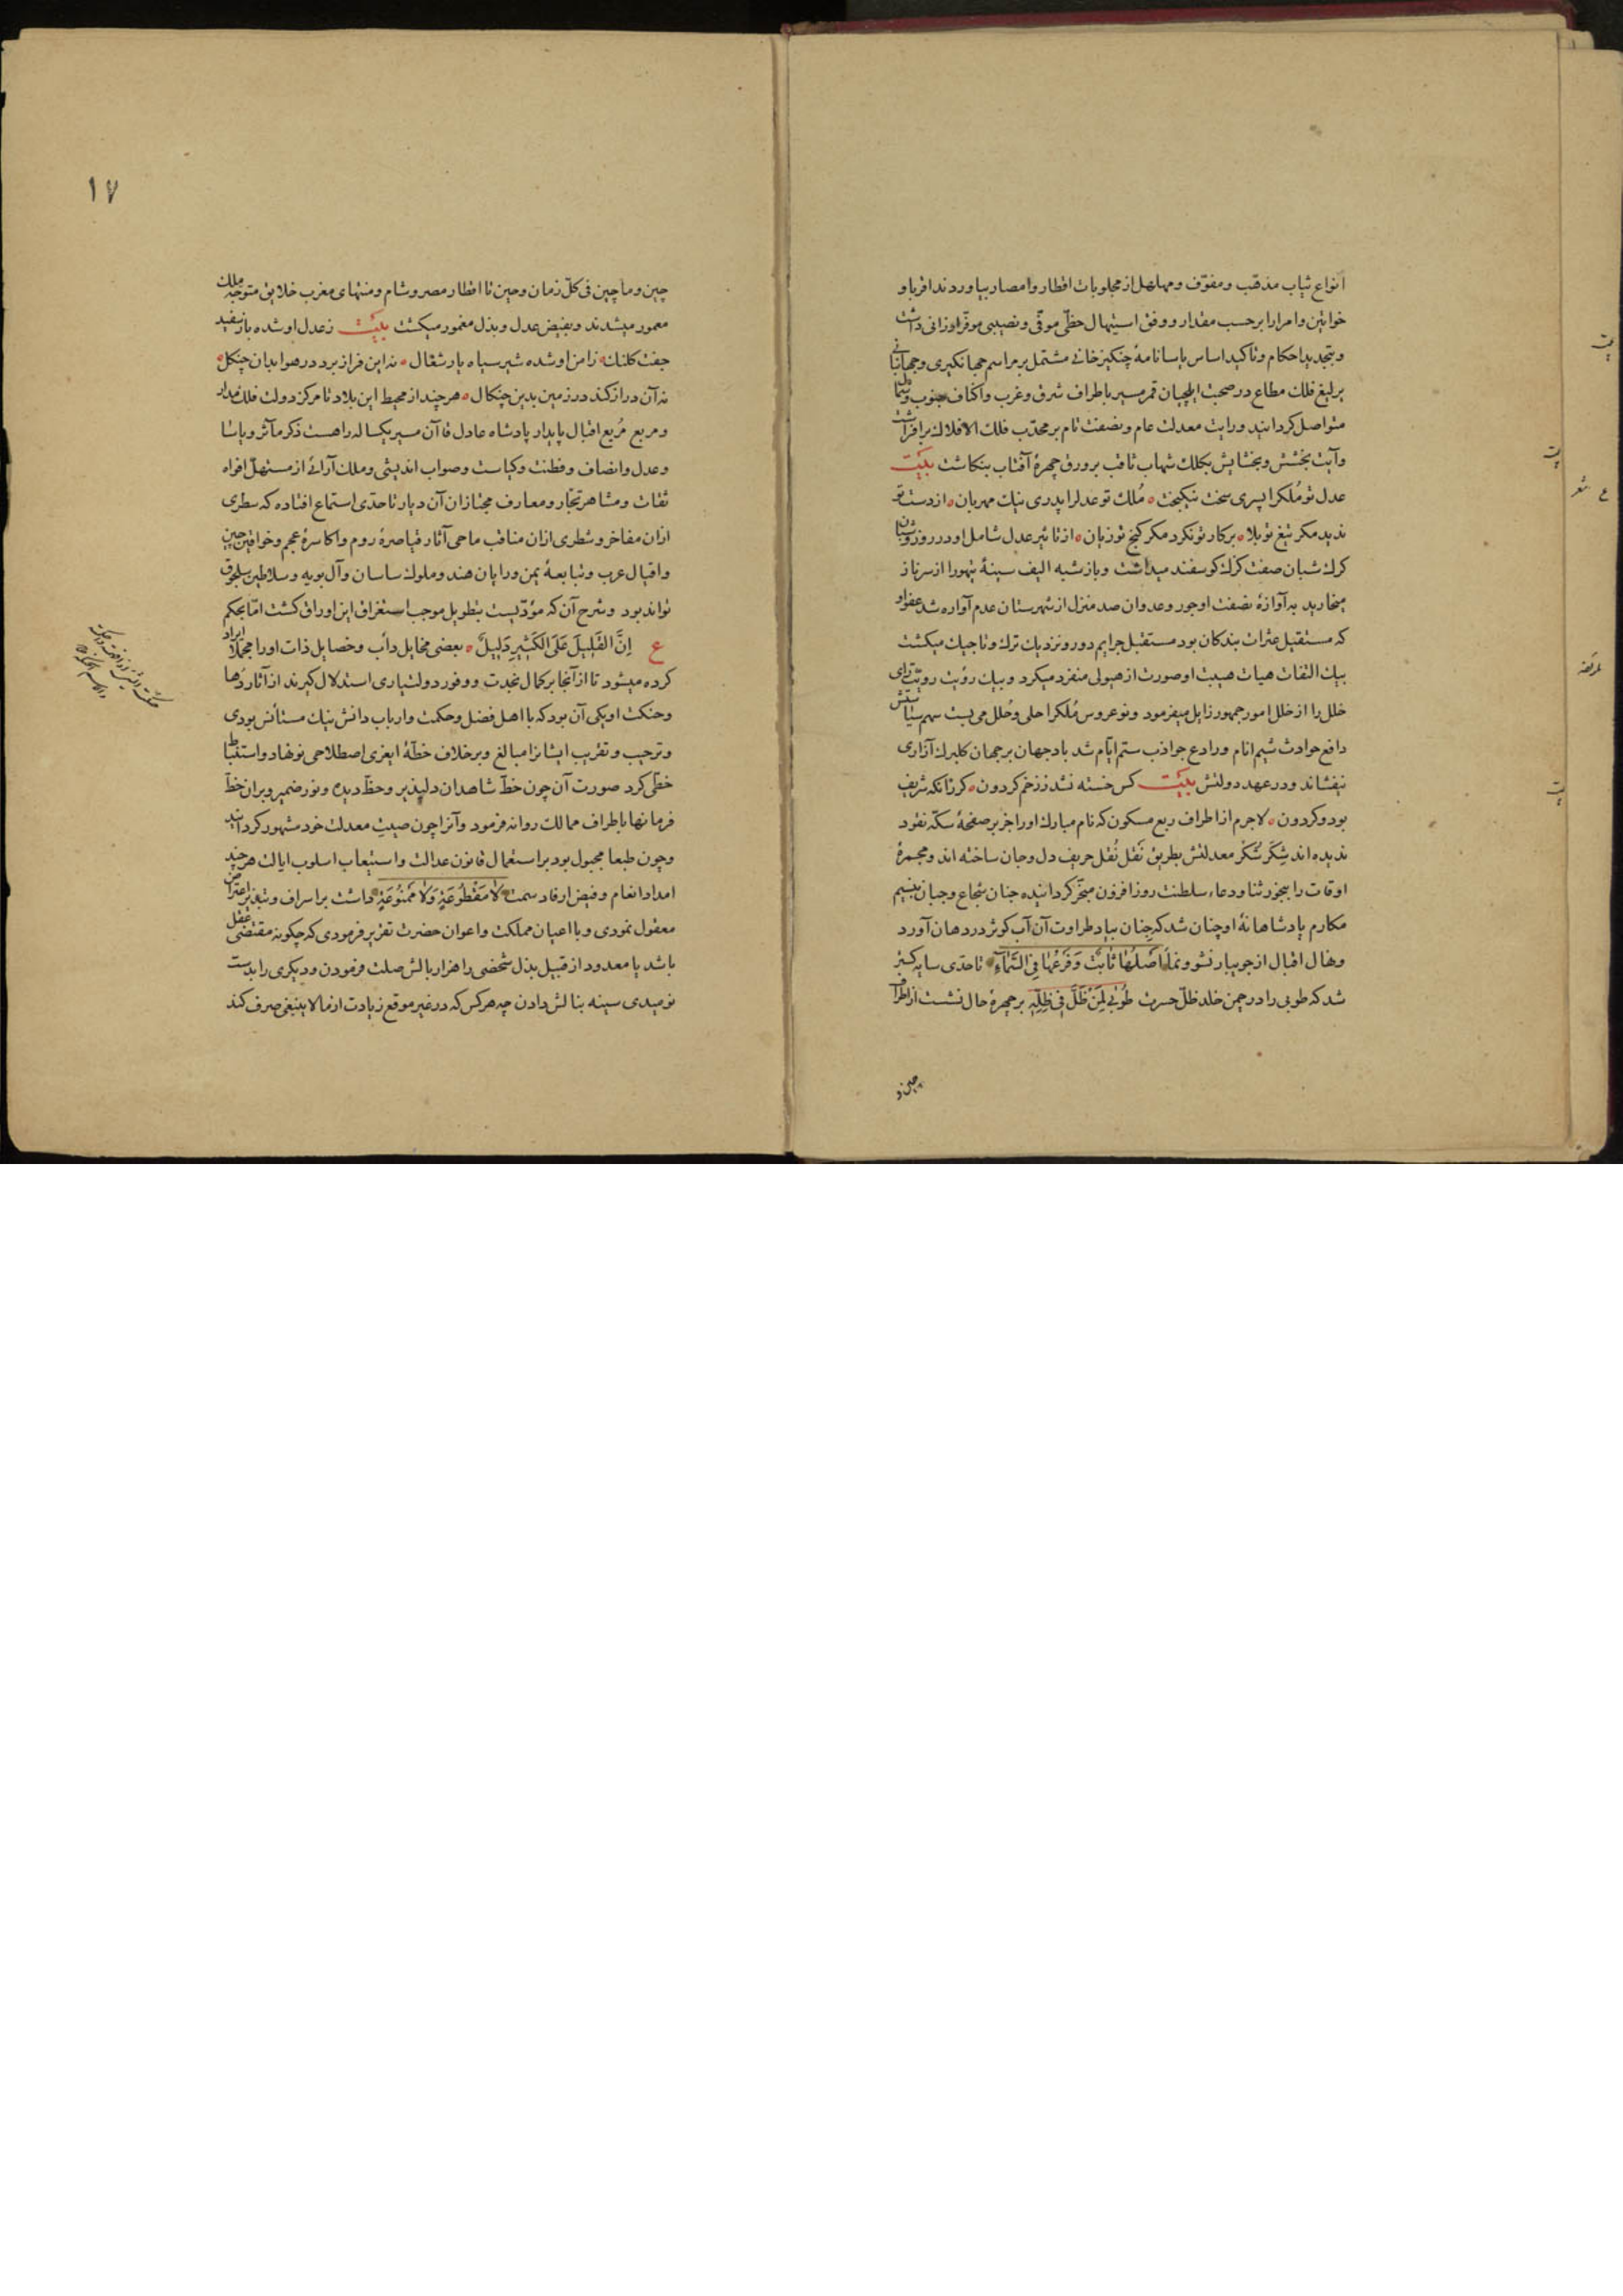 انواع ثیاب مذهّب و مفوّف و مهلهل از مجلوبات اقطار و امصار بیاوردند اقربا و
خواتین و امرا را برحسب مقدار و وفق استیهال حظّی موفّی و نصیبی موفّر ارزانی داشت
و بتجدید احکام و تاکید اساس یاسانامهٔ چنکیزخانی مشتمل بر مراسم جهانکیری و جهانبانی
یرلیغ فلك مطاع در صحبت ایلچیان قمر مسیر باطراف شرق و غرب و اکناف جنوب و شمال
متواصل کردانید و رایت معدلت عام و نصفت تام بر محدّب فلك الافلاك برافراشت
و آیت بخشش و بخشایش بکلك شهاب ثاقب بر ورق چهرهٔ آفتاب بنکاشت بیت
عدل تو مُلكرا پسری سخت نیکبخت ٥ مُلك تو عدلرا پدری نیك مهربان ٥ از دست تو
ندید مکر تیغ تو بلا ٥ بر کار تو نکرد مکر کنج تو زیان ٥ از تاثیر عدل شامل او در روز و شبان
کرك شبان صفت کرك کوسفند میداشت و باز شبه الیف سینهٔ تیهو را از سر ناز
میخارید به آوازهٔ نصفت او جور و عدوان صد منزل از شهرستان عدم آواره شد عفو او
که مستقیل عثرات بندکان بود مستقبل جرایم دور و نزدیك ترك و تاجیك میکشت
بیك التفات هیات هیبت او صورت از هیولی منفرد میکرد و بیك رؤیت رویّت رای
خلل را از خلل امور جمهور زایل میفرمود و نو عروس مُلكرا حلی و حُلل می بست سهم سیاستش
دافع حوادث شیم انام و رادع جواذب ستم ایّام شد باد جهان بر جهان کلبرك آزاری
نیفشاند و در عهد دولتش بیت کس خسته نشد ز زخم کردون ٥ کر زانکه شریف
بود و کر دون ٥ لاجرم از اطراف ربع مسکون که نام مبارك او را جز بر صفحهٔ سکّه نقود
ندیده اند شِکَر شُکر معدلتش بطریق نَقل نُقل حریف دل و جان ساخته اند و مجمرهٔ
اوقات را ببخور ثنا و دعاء سلطنت روز افزون مبخّر کردانیده جنان شجاع و جبان بنسیم
مکارم پادشاهانهٔ او چنان شد که جِنان بیاد طراوت آن آب کوثر در دهان آورد
و نهال اقبال از جویبار نشو و نما اَصْلُهَا ثَابِتٌ وَفَرْعُهَا فِی السَّمَاءِ تا حدّی سایه کستر
شد که طوبی را در چمن خلد ظلّ حسرت طُوبٰی لِمَنْ ظَلَّ فِی ظِلِّهِ بر چهرهٔ حال نشست از اطراف
چین و
١٧
چین و ماچین فی کلّ زمان و حین تا اقطار مصر و شام و منتهای مغرب خلایق متوجه ملك
معمور میشدند و بفیض عدل و بذل مغمور میکشت بیت ز عدل او شده باز سفید
جفت کلنك ٥ ز امن او شده شیر سیاه یار شغال ٥ نه این فراز برد در هوا بدان چنکل ٥
نه آن دراز کند در زمین بدین چنکال ٥ هر چند از محیط این بلاد تا مرکز دولت فلك مدار
و مربع مُربع اقبال پایدار پادشاه عادل قاآن مسیر یکساله راهست ذکر مآثر و یاسا
و عدل و انصاف و فطنت و کیاست و صواب اندیشی و ملك آرائی از مستهلّ افواه
ثقات و مشاهیر تجّار و معارف مجتازان آن دیار تا حدّی استماع افتاده که سطری
از ان مفاخر و شطری از ان مناقب ماحی آثار قیاصرهٔ روم و اکاسرهٔ عجم و خواقین چین
و اقیال عرب و تبابعهٔ یمن و رایان هند و ملوك ساسان و آل بویه و سلاطین سلجوق
تواند بود و شرح آن که مؤدّیست بتطویل موجب استغراق این اوراق کشت امّا بحکم
ع اِنَّ القَلِیلَ عَلَی الکَثِیرِ دَلِیلٌ ٥ بعضی مخایل دأب و خصایل ذات او را مجملاً ایراد
کرده میشود تا از آنجا بر کمال نجدت و وفور دولتیاری استدلال کیرند از آثار دها
و حنکت او یکی آن بود که با اهل فضل و حکمت و ارباب دانش نیك مستأنس بودی
و ترحیب و تقریب ایشانرا مبالغ و بر خلاف خطّهٔ ایغری اصطلاحی نو نهاد و استنباط
خطّی کرد صورت آن چون خطّ شاهدان دلپذیر و حظّ دیده و نور ضمیر و بران خطّ
فرمانها باطراف ممالك روانه فرمود و آنرا چون صیت معدلت خود مشهور کردانید
و چون طبعا مجبول بود بر استعمال قانون عدالت و استیعاب اسلوب ایالت هر چند
امداد انعام و فیض ارفاد سمت لَا مَقْطُوعَةٍ وَلَا مَمْنُوعَةٍ داشت بر اسراف و تبذیر اعتراض
معقول نمودی و با اعیان مملکت و اعوان حضرت تقریر فرمودی که چکونه مقتضی عقل
باشد یا معدود از قبیل بذل شخصی را هزار بالش صلت فرمودن و دیکری را بدست
نومیدی سینه بنالش دادن چه هر کس که در غیر موقع زیادت از ما لا ینبغی صرف کند